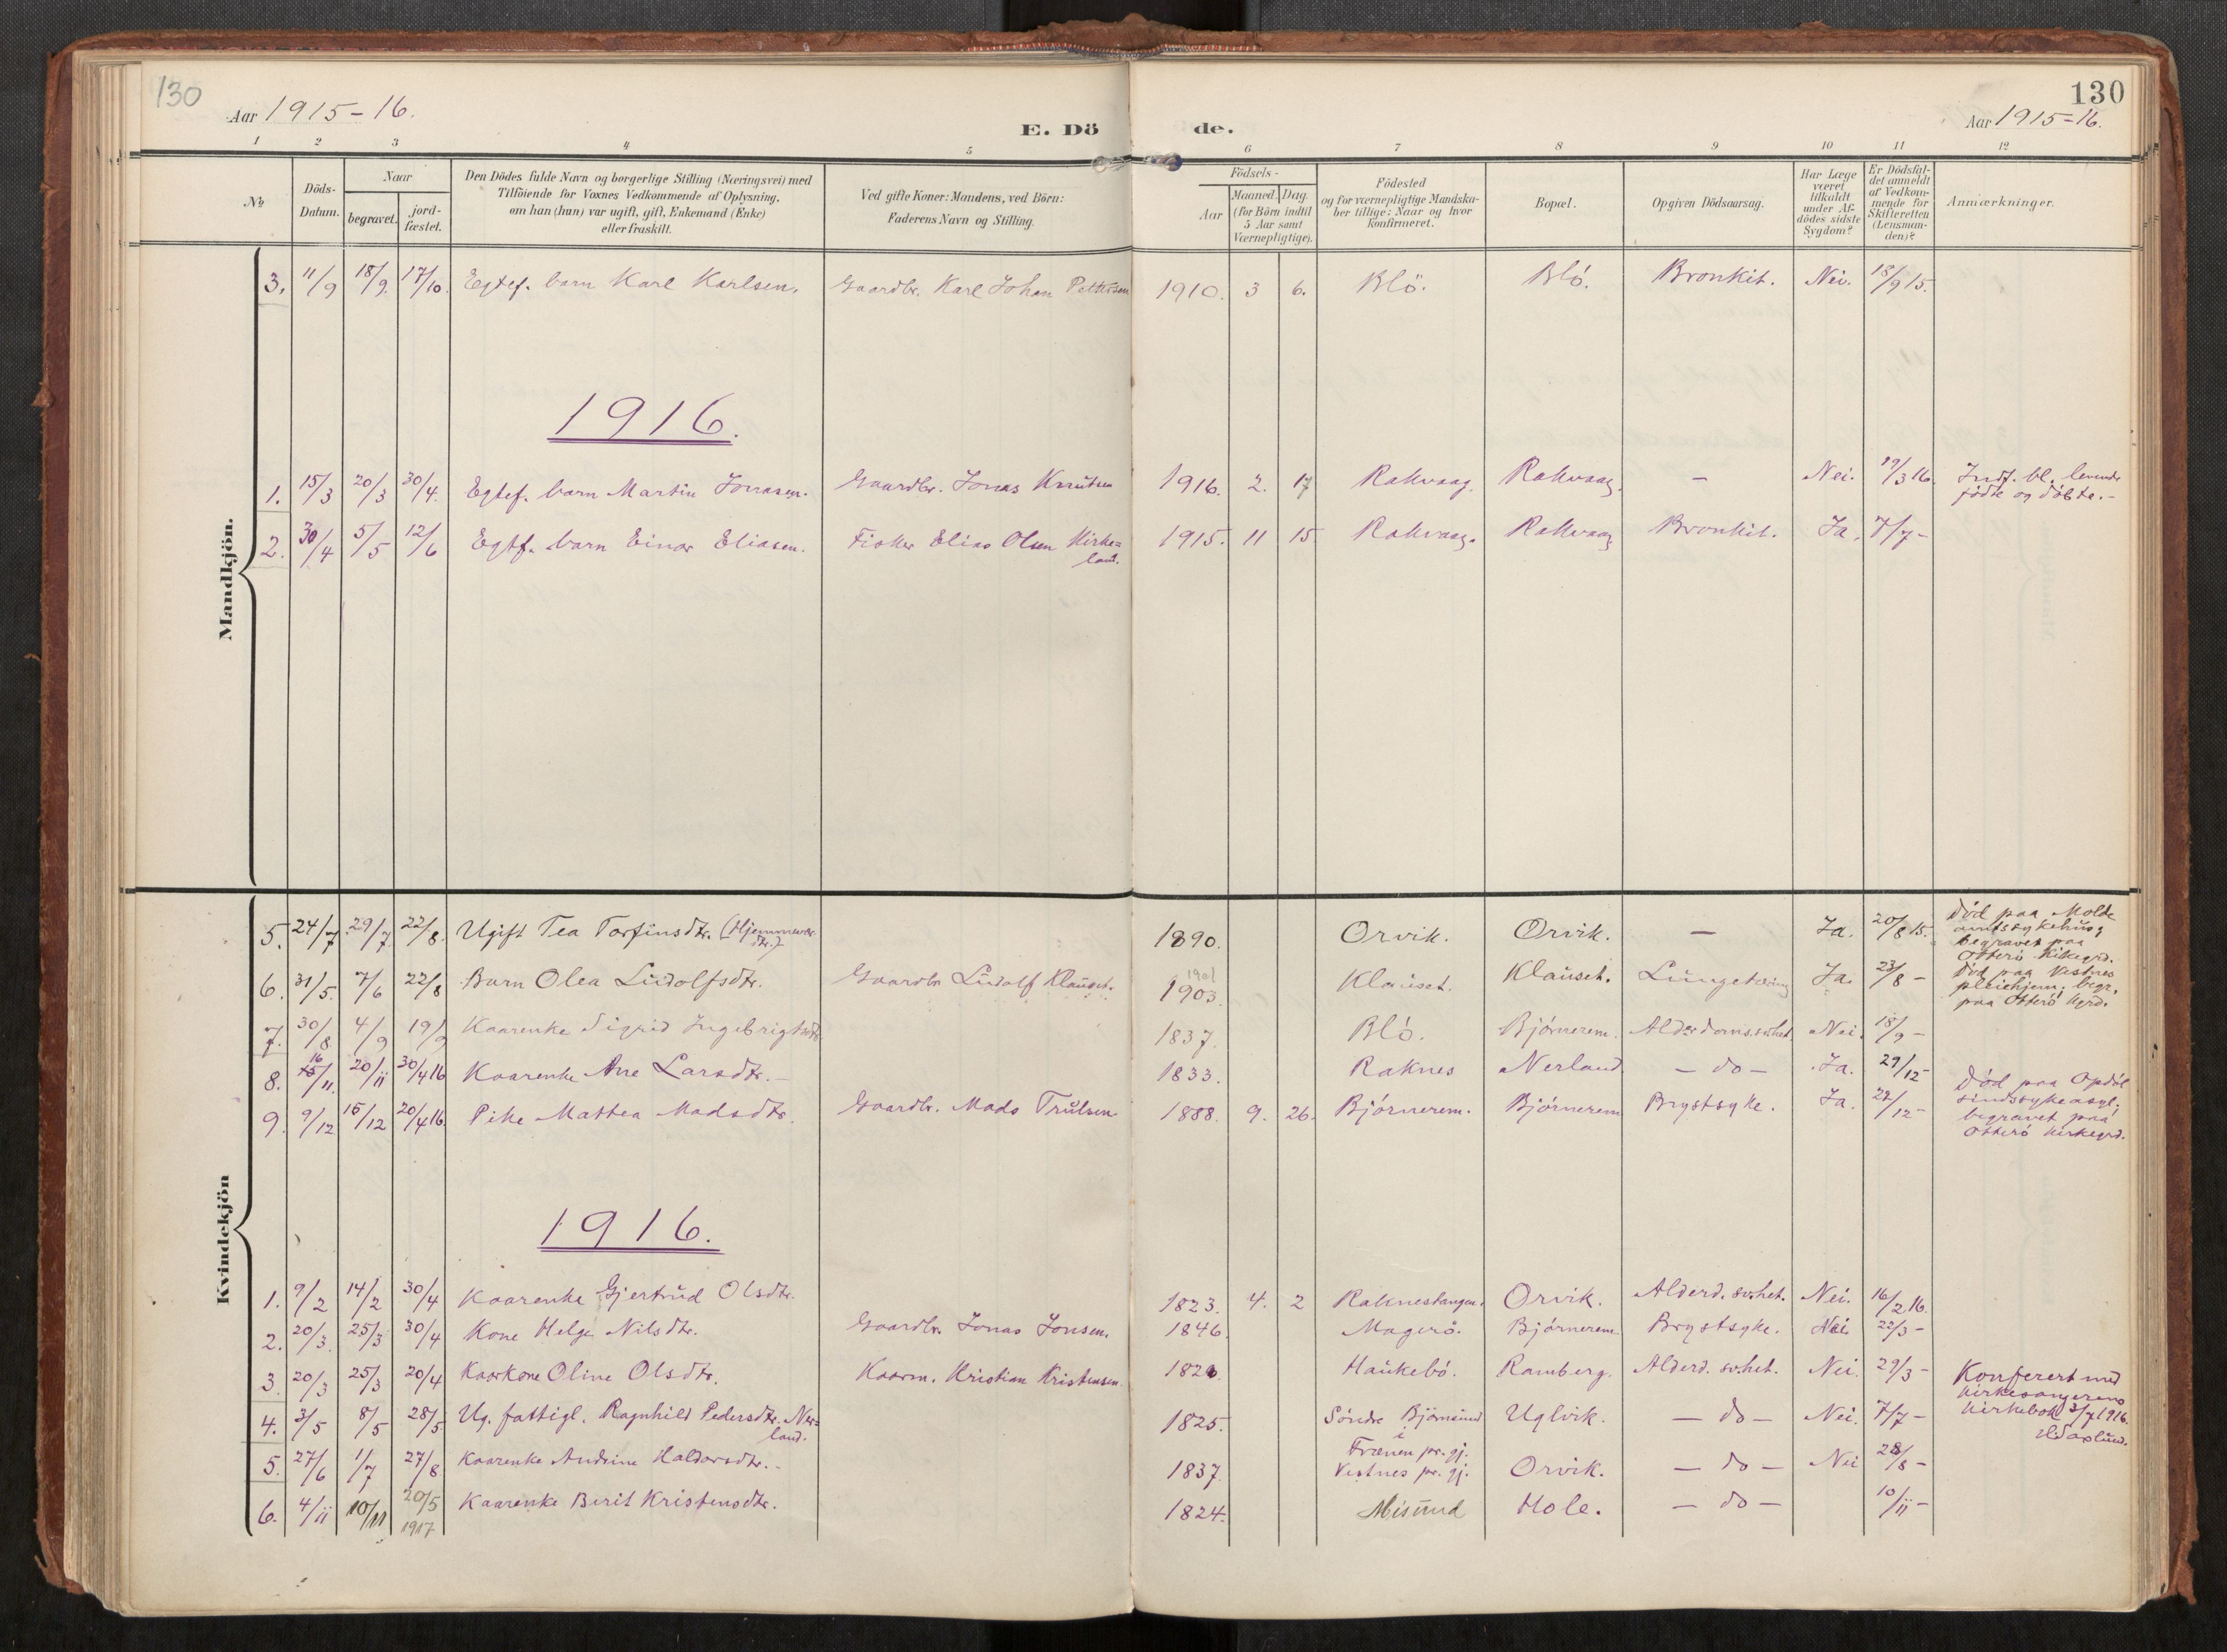 130
130
Aar 1915-16.
E. Dö
de.
Aar 1915-16.
1 2 3 4 5 6 7 8 9 10 11 12
№
Döds-
Datum.
Naar
begravet.
jord-
fæstet.
Den Dödes fulde Navn og borgerlige Stilling (Næringsvei) med
Tilföiende for Voxnes Vedkommende af Oplysning,
om han (hun) var ugift, gift, Enkemand (Enke)
eller fraskilt.
Ved gifte Koner: Mandens, ved Börn:
Faderens Navn og Stilling.
Födsels-
Aar
Maaned. Dag.
(for Börn indtil
5 Aar samt
Værnepligtige).
Födested
og for værnepligtige Mandska-
ber tillige: Naar og hvor
konfirmeret.
Bopæl.
Opgiven Dödsaarsag.
Har Læge
været
tilkaldt
under Af-
dödes sidste
Sygdom?
Er Dödsfal-
det anmeldt
af Vedkom-
mende for
Skifteretten
(Lensman-
den)?
Anmærkninger.
Mandkjön.
3. 11/9 18/9. 17/10. Egtef. barn Karl Karlsen. Gaardbr. Karl Johan Pettersen 1910. 3 6. Blö. Blö. Bronkit. Nei. 18/9 15.
1916.
1. 15/3 20/3 30/4. Egtef. barn Martin Jonasen. Gaardbr. Jonas Knutsen 1916. 2. 17 Rakvaag. Rakvaag. — Nei. 19/3 16. Indf. bl. levende
födte og döbte.-
2. 30/4 5/5 12/6 Egtf. barn Einar Eliasen. Fisker Elias Olsen Kirke=
land. 1915. 11 15 Rakvaag. Rakvaag. Bronkit. Ja. 7/7-
Kvindekjön
5. 24/7 29/7 22/8. Ugift Tea Torfinsdtr. (Hjemmevær.
dtr.) 1890. Orvik. Orvik. — Ja. 20/8 15. Död paa Molde
amtssykehus,
begravet paa
Otterö kikegrd.
6. 31/5. 7/6 22/8 Barn Olea Ludolfsdtr. Gaardbr Ludolf Klauset. 1901
1903. Klauset. Klauset. Lungetæring Ja. 23/8 - Död paa Vestnes
pleiehjem, begr.
paa Otterö kgrd.
7. 30/8 4/9 19/9 Kaarenke Sigrid Ingebrigtsdtr 1837. Blö. Björnerem. Alderdoms.sv.het. Nei. 18/9 -
8. 16 15/11. 20/11 30/4 16 Kaarenke Ane Larsdtr.- 1833. Raknes Nerland — do — Ja. 29/12-
9. 9/12 15/12 20/4 16. Pike Mattea Madsdtr. Gaardbr. Mads Trulsen 1888. 9. 26. Björnerem. Björnerem Brystsyke. Ja. 22/12- Död paa Opdöl
sindssykeasyl,
begravet paa
Otterö kirkegrd.
1916.
1. 9/2 14/2 30/4 Kaarenke Gjertrud Olsdtr. 1823. 4. 2 Raknestangen. Orvik. Alderd. sv.het. Nei. 16/2 16.
2. 20/3. 25/3 30/4 Kone Helge Nilsdtr. Gaardbr. Jonas Jonsen. 1846. Magerö. Björnerem. Brystsyke. Nei 22/3 -
3. 20/3 25/3 20/4 Kaarkone Oline Olsdtr. Kaarm. Kristian Kristensen. Haukebö. Ramberg. Alderd. sv.het. Nei. 29/3 - Konferert med
kirkesangerens
kirkebok 3/7 1916.
4. 3/5 8/5 28/5 Ug. fattigl. Ragnhild Pedersdtr. Ner=
land. 1825. Söndre Björnsund
i
Frænen pr. gj. Uglvik. — do — Nei. 7/7 -
5. 27/6 1/7 27/8 Kaarenke Andrine Haldorsdtr.- 1837. Vestnes pr. gj. Orvik. — do — Nei 28/8 -
6. 4/11 10/11 20/5
1917 Kaarenke Berit Kristensdtr. 1824. Misund Hole. — do — 10/11 -